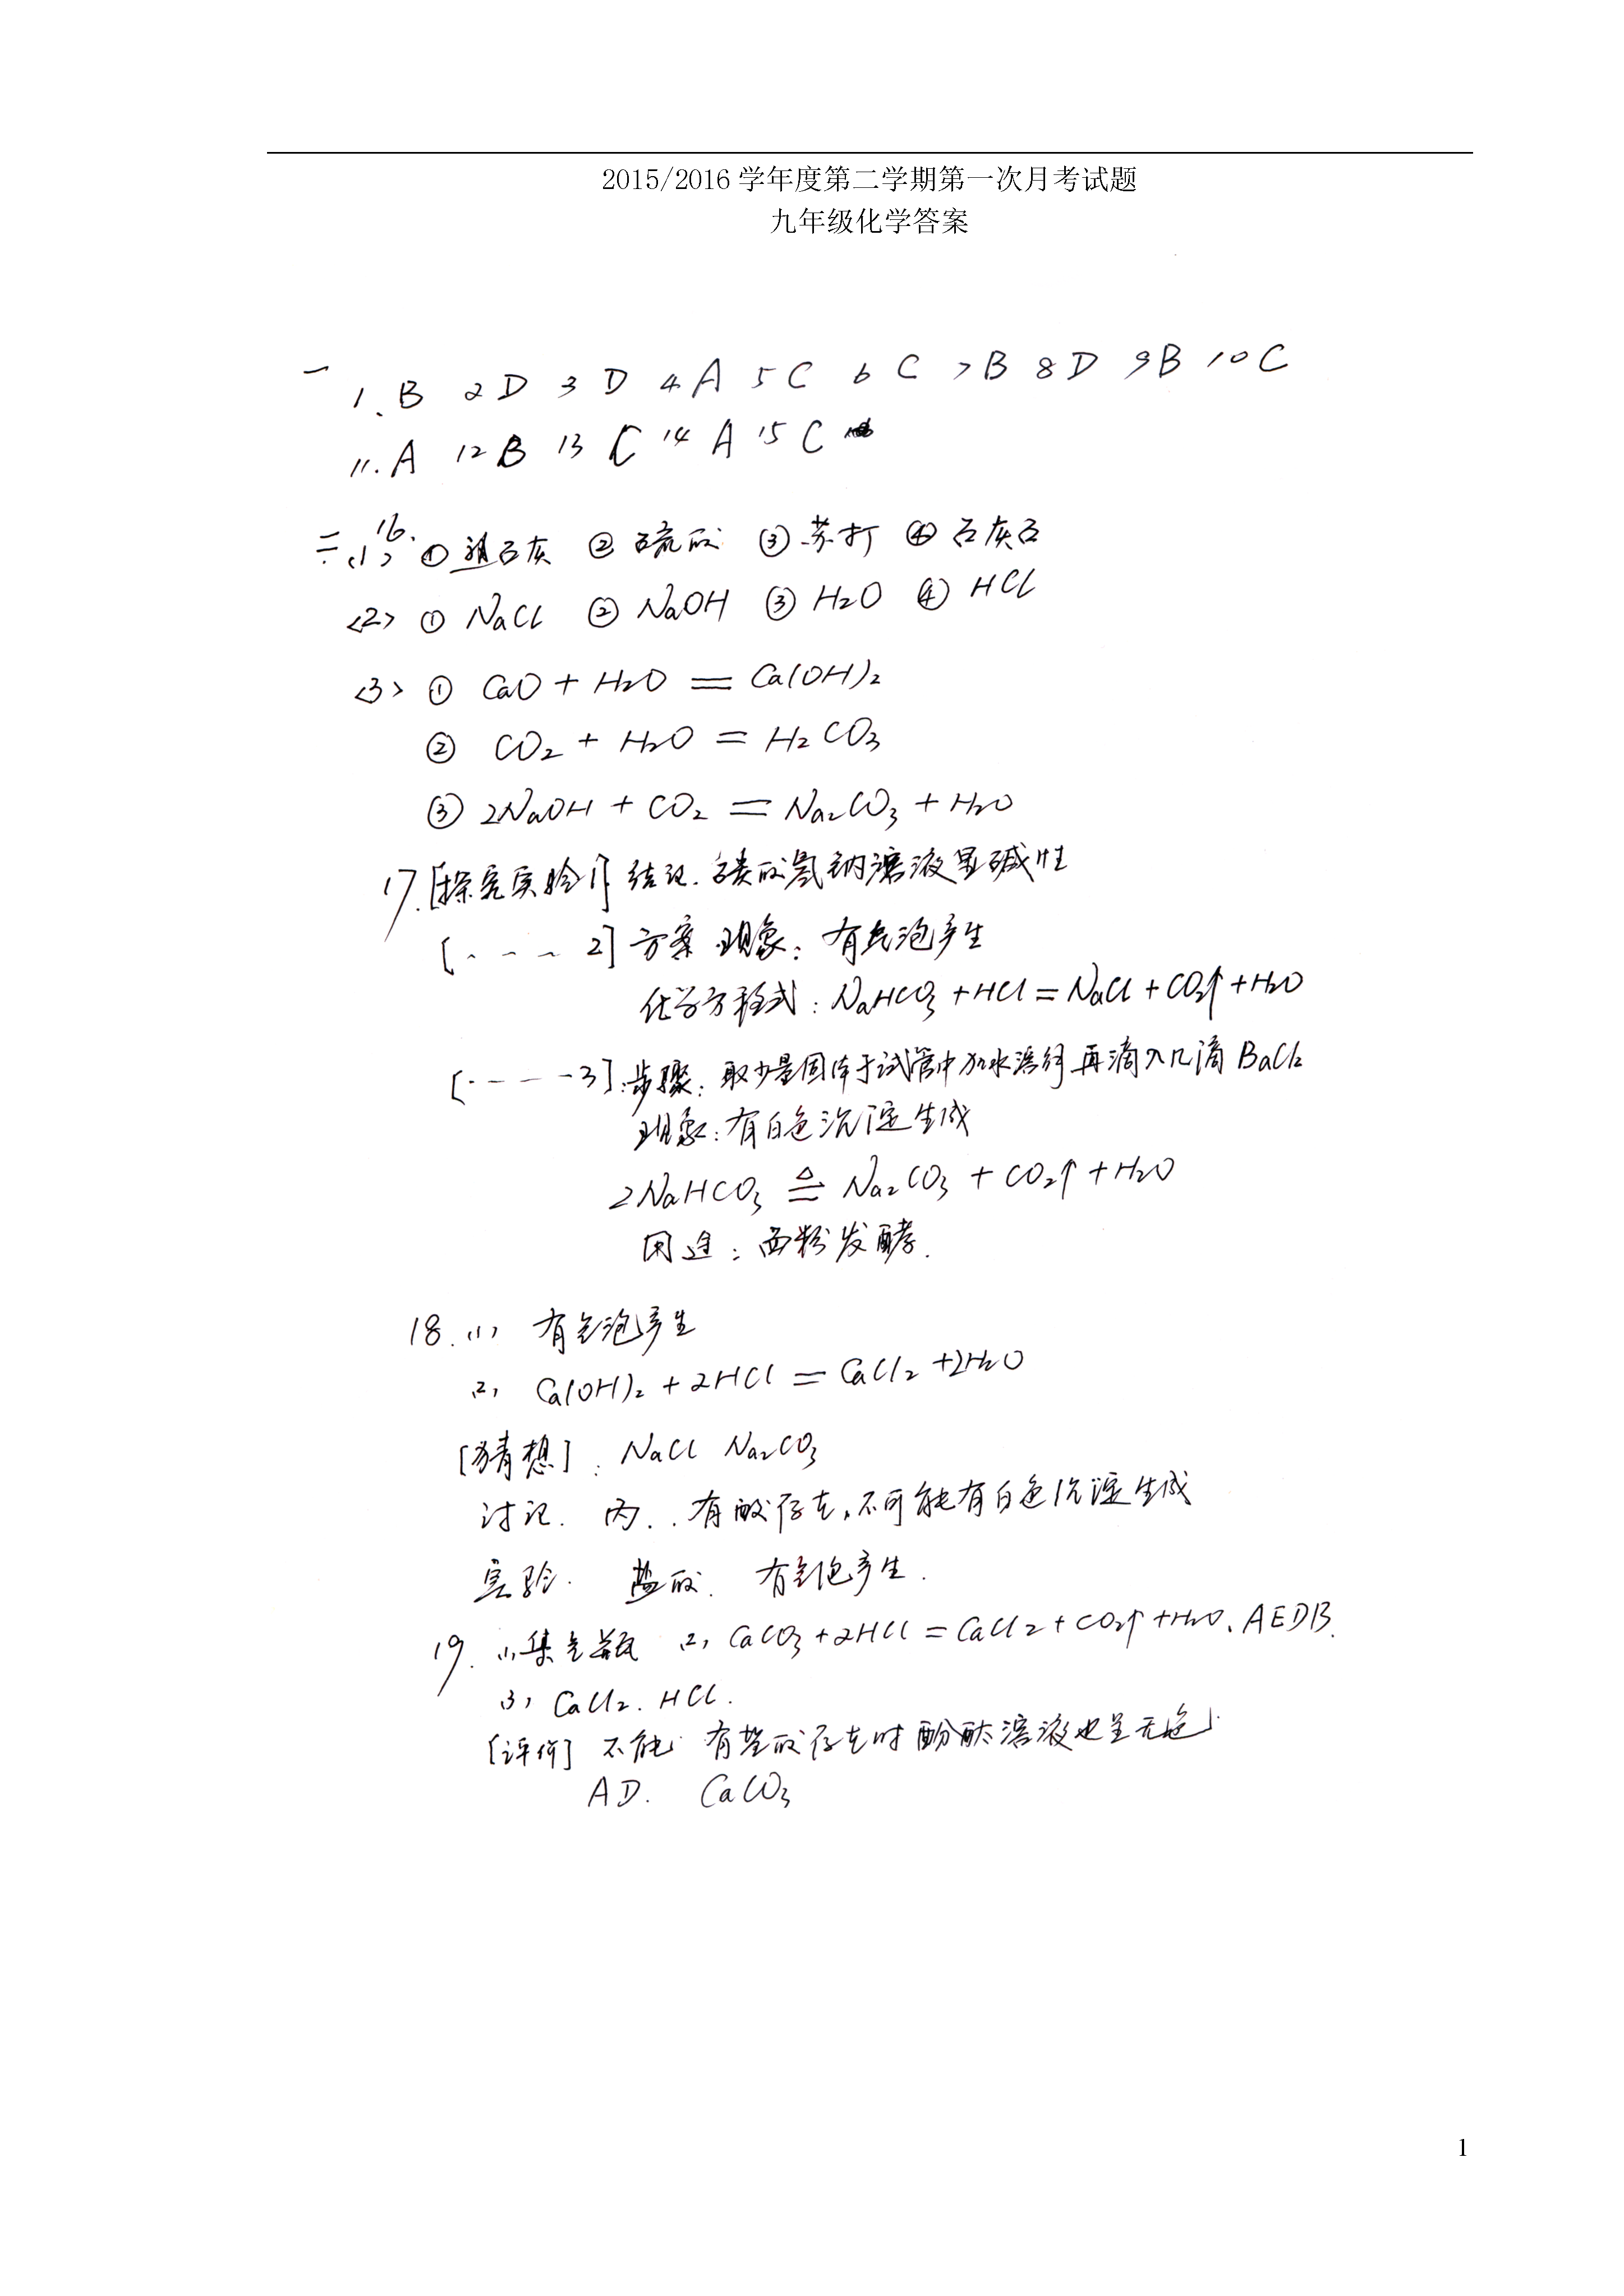 2015/2016 学年度第二学期第一次月考试题
九年级化学答案
一 1. B 2 D 3 D 4 A 5 C 6 C 7 B 8 D 9 B 10 C
11. A 12 B 13 C 14 A 15 C
二. 16. <1> ① 石灰 ② 硫酸 ③ 苏打 ④ 石灰石
<2> ① NaCl ② NaOH ③ H2O ④ HCl
<3> ① CaO + H2O = Ca(OH)2
② CO2 + H2O = H2CO3
③ 2NaOH + CO2 = Na2CO3 + H2O
17. [探究实验1] 结论. 碳酸氢钠溶液显碱性
[- - - - 2] 方案 现象: 有气泡产生
化学方程式: NaHCO3 + HCl = NaCl + CO2↑ + H2O
[- - - - 3]: 步骤: 取少量固体于试管中加水溶解再滴入几滴 BaCl2
现象: 有白色沉淀生成
2NaHCO3 ≜ Na2CO3 + CO2↑ + H2O
用途: 面粉发酵.
18. (1) 有气泡产生
(2) Ca(OH)2 + 2HCl = CaCl2 + 2H2O
[猜想]: NaCl Na2CO3
讨论. 丙. . 有酸存在, 不可能有白色沉淀生成
实验. 盐酸. 有气泡产生.
19. (1) 集气瓶 (2) CaCO3 + 2HCl = CaCl2 + CO2↑ + H2O. AEDB.
(3) CaCl2. HCl.
[评价] 不能 有盐酸存在时酚酞溶液也呈无色.
AD. CaCO3
1